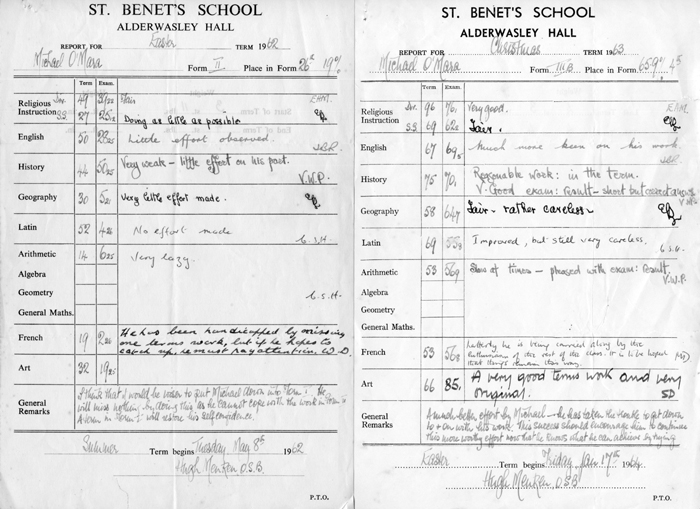 ST. BENET'S SCHOOL
ALDERWASLEY HALL
REPORT FOR Easter TERM 1962
Michael O'Mara Form II Place in Form 26th
Term Exam.
Religious Instruction Scr. 49 Fair E.H.M.
S.S. 27 Doing as little as possible
English 50 Little effort observed.
History 44 Very weak - little effort on his part.
V.W.P.
Geography 30 Very little effort made.
Latin 52 No effort made
C.S.H.
Arithmetic 14 Very lazy.
Algebra
Geometry
C.S.H.
General Maths.
French 19 He has been handicapped by missing
one terms work, but if he hopes to
catch up, he must pay attention. W.D.
Art 32
General Remarks I think that it would be wiser to put Michael down into Form I. He
will miss nothing by doing this as he cannot cope with the work in Form II
A term in Form I will restore his self confidence.
Summer Term begins Tuesday May 8th 1962
Hugh Menken O.S.B.
P.T.O.
ST. BENET'S SCHOOL
ALDERWASLEY HALL
REPORT FOR Christmas TERM 1963
Michael O'Mara Form III B Place in Form
Term Exam.
Religious Instruction Scr. 96 Very good. E.H.M.
S.S. 69 Fair.
English 67 Much more keen on his work.
History 75 Reasonable work: in the term.
V. Good exam: result - short but accurate answers
V.W.P.
Geography 58 Fair - rather careless
Latin 69 Improved, but still very careless.
C.S.H.
Arithmetic 53 Slow at times - pleased with exam: result.
V.W.P.
Algebra
Geometry
General Maths.
French 53 Latterly he is being carried along by the
enthusiasm of the rest of the class. It is to be hoped
that things remain this way.
Art 66 85. A very good terms work and very
original. SD
General Remarks A much better effort by Michael - he has taken the trouble to get down
to + on with his work. This success should encourage him to continue
this more worthy effort now that he knows what he can achieve by trying
Easter Term begins Friday Jan. 17th 1964
Hugh Menken O.S.B.
P.T.O.